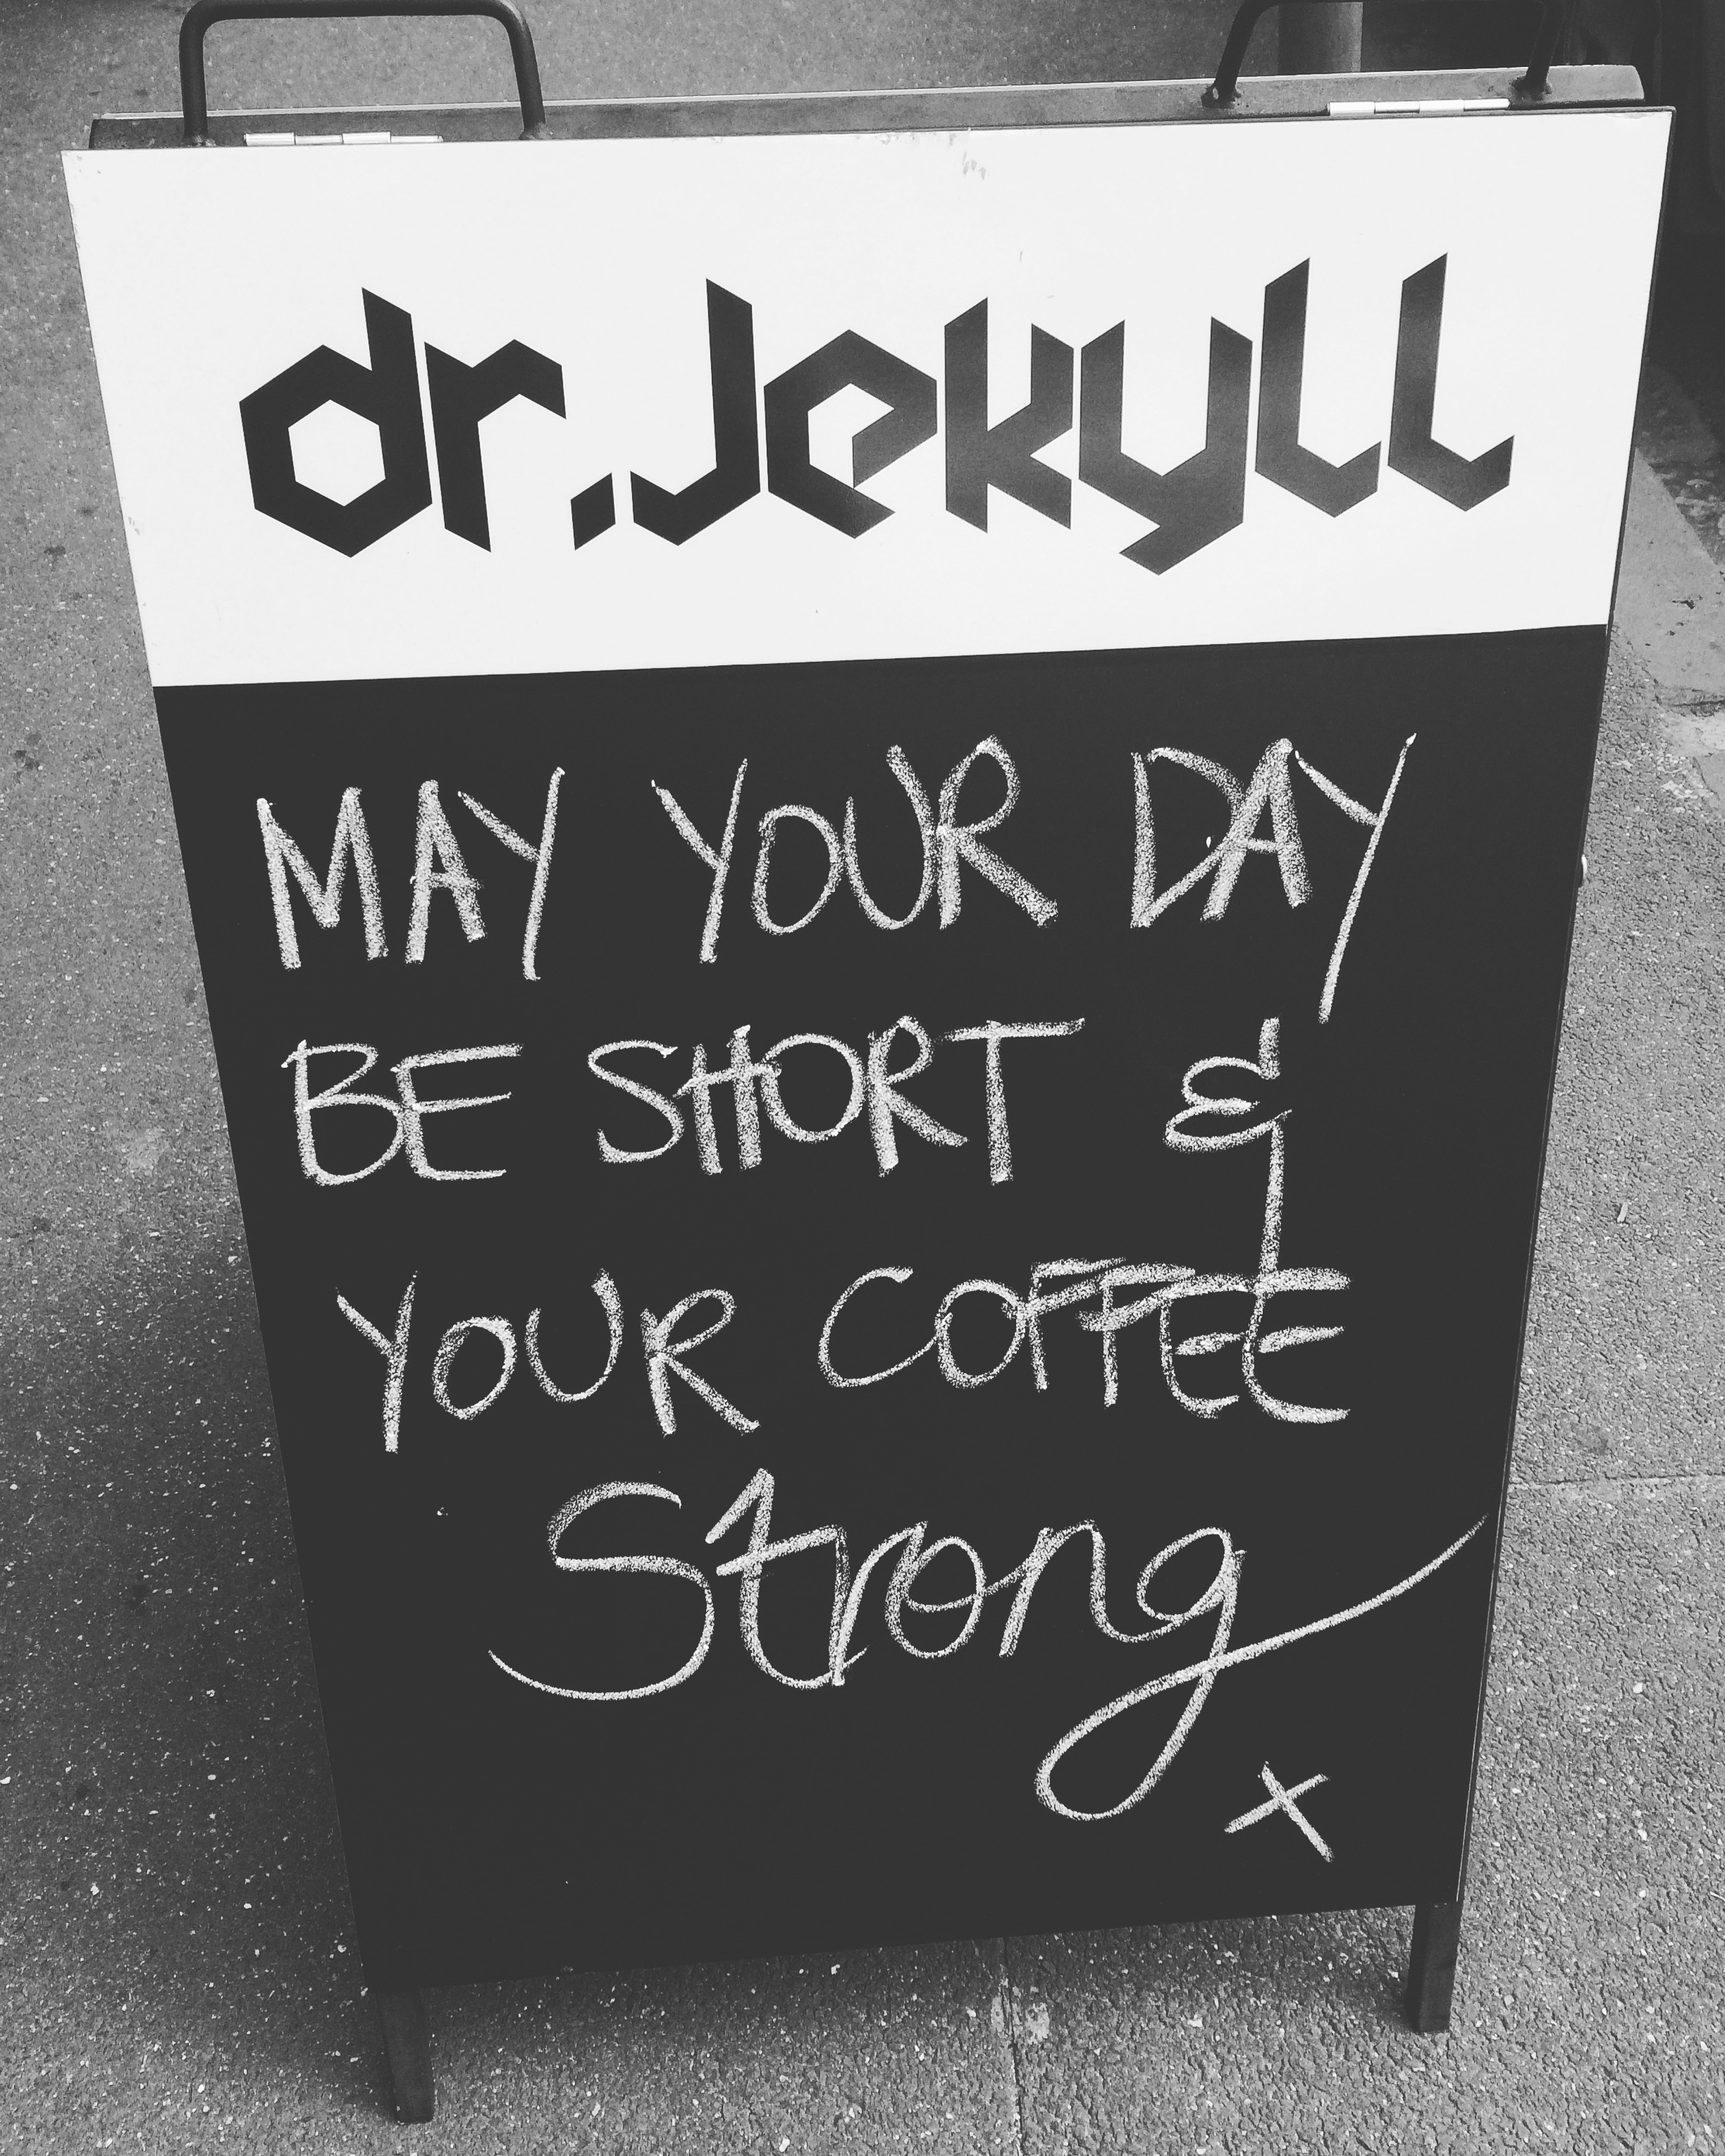 dr.Jekyll
MAY YOUR DAY
BE SHORT &
YOUR COFFEE
Strong
x